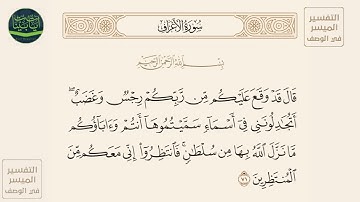 سُورَةُ الأَعْرَافِ
التفسير
الميسر
في الوصف
بِسْمِ اللَّهِ الرَّحْمَٰنِ الرَّحِيمِ
قَالَ قَدْ وَقَعَ عَلَيْكُم مِّن رَّبِّكُمْ رِجْسٌ وَغَضَبٌ ۖ
أَتُجَٰدِلُونَنِى فِىٓ أَسْمَآءٍ سَمَّيْتُمُوهَآ أَنتُمْ وَءَابَآؤُكُم
مَّا نَزَّلَ ٱللَّهُ بِهَا مِن سُلْطَٰنٍ ۚ فَٱنتَظِرُوٓا۟ إِنِّى مَعَكُم مِّنَ
ٱلْمُنتَظِرِينَ ٧١
التفسير
الميسر
في الوصف